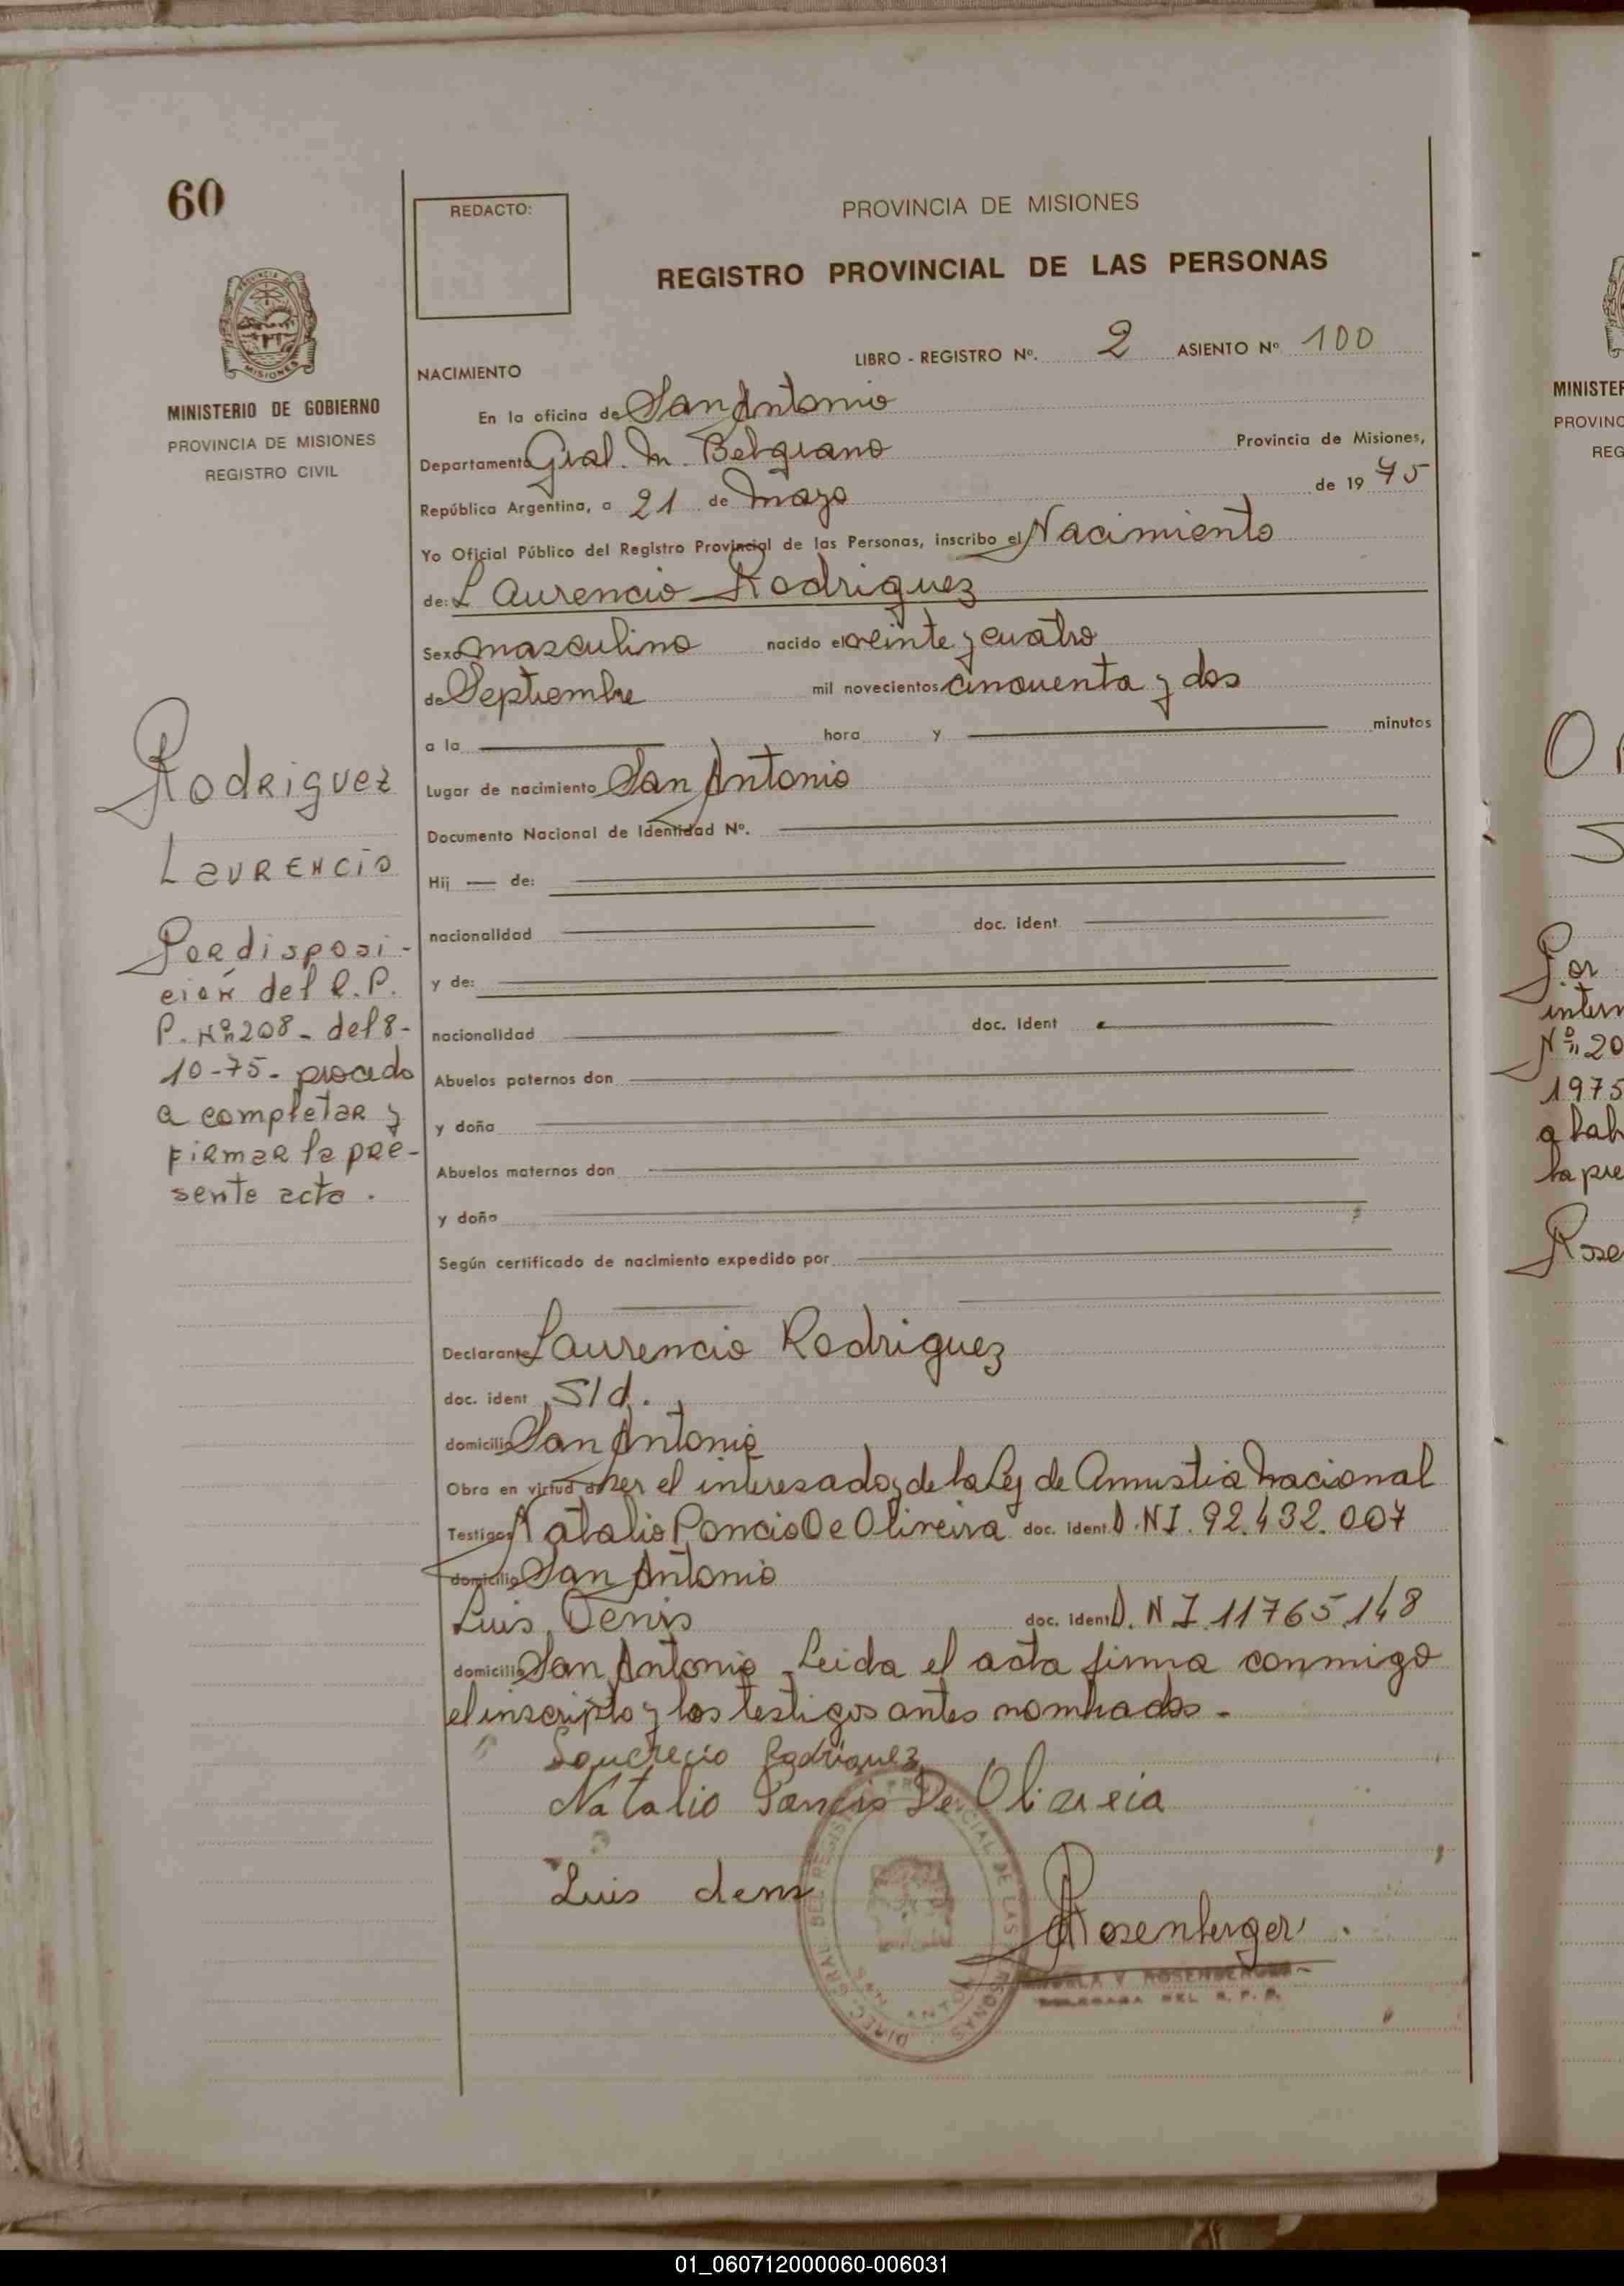 60
PROVINCIA DE MISIONES
MINISTERIO DE GOBIERNO
PROVINCIA DE MISIONES
REGISTRO CIVIL
Rodriguez
Laurencio
Por disposi-
ción del R.P.
P. Nº 208 - del 8-
10-75 - procedo
a completar y
firmar la pre-
sente acta.
REDACTO:
PROVINCIA DE MISIONES
REGISTRO PROVINCIAL DE LAS PERSONAS
LIBRO - REGISTRO Nº. 2 ASIENTO Nº 100
NACIMIENTO
En la oficina de San Antonio
Departamento Gral. M. Belgrano Provincia de Misiones,
República Argentina, a 21 de Mayo de 1975
Yo Oficial Público del Registro Provincial de las Personas, inscribo el Nacimiento
de: Laurencio Rodriguez
Sexo masculino nacido el veinte y cuatro
de Septiembre mil novecientos cincuenta y dos
a la hora y minutos
Lugar de nacimiento San Antonio
Documento Nacional de Identidad Nº.
Hij — de:
nacionalidad doc. ident
y de:
nacionalidad doc. Ident
Abuelos paternos don
y doña
Abuelos maternos don
y doña
Según certificado de nacimiento expedido por
Declarante Laurencio Rodriguez
doc. ident S/d.
domicilio San Antonio
Obra en virtud de ser el interesado y de la Ley de Amnistia Nacional
Testigos Natalio Poncio De Oliveira doc. ident D.N.I. 92.432.007
domicilio San Antonio
Luis Denis doc. ident D.N.I. 11765.148
domicilio San Antonio Leida el acta firma conmigo
el inscripto y los testigos antes nombrados -
Rodriguez
Natalio Poncio De Oliveira
Luis denis
Rosenberger
V. ROSENBERGER
DELEGADA DEL R. P. P.
DIREC. GRAL. DEL REGISTRO PROVINCIAL DE LAS PERSONAS
SAN ANTONIO
MINISTER
PROVINC
REG
Por
intern
Nº 20
1975
a lab
la pre
Rose
01_060712000060-006031